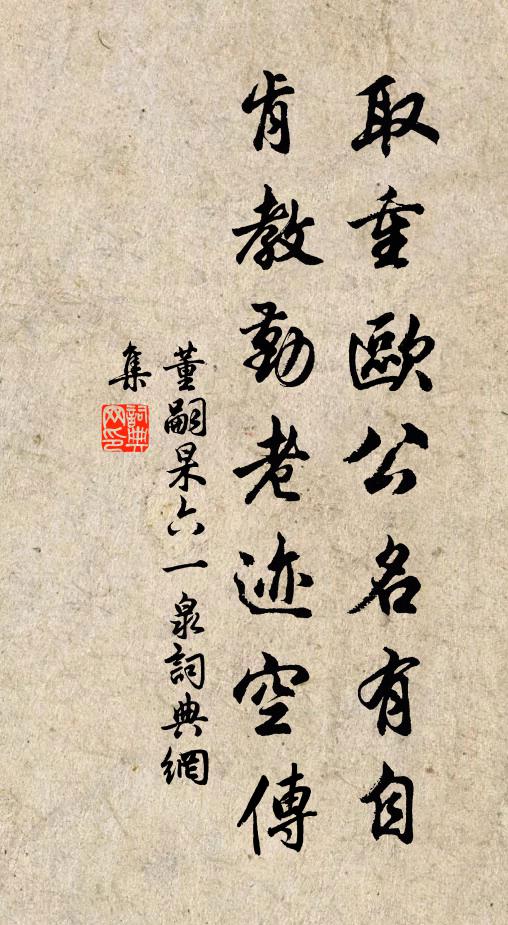 取重歐公名有自
肯教勤老迹空傳
董嗣杲六一泉詞典網
集
詞典網印